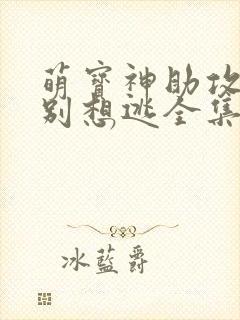 萌寶神助攻
別想逃全集
,
冰藍爵